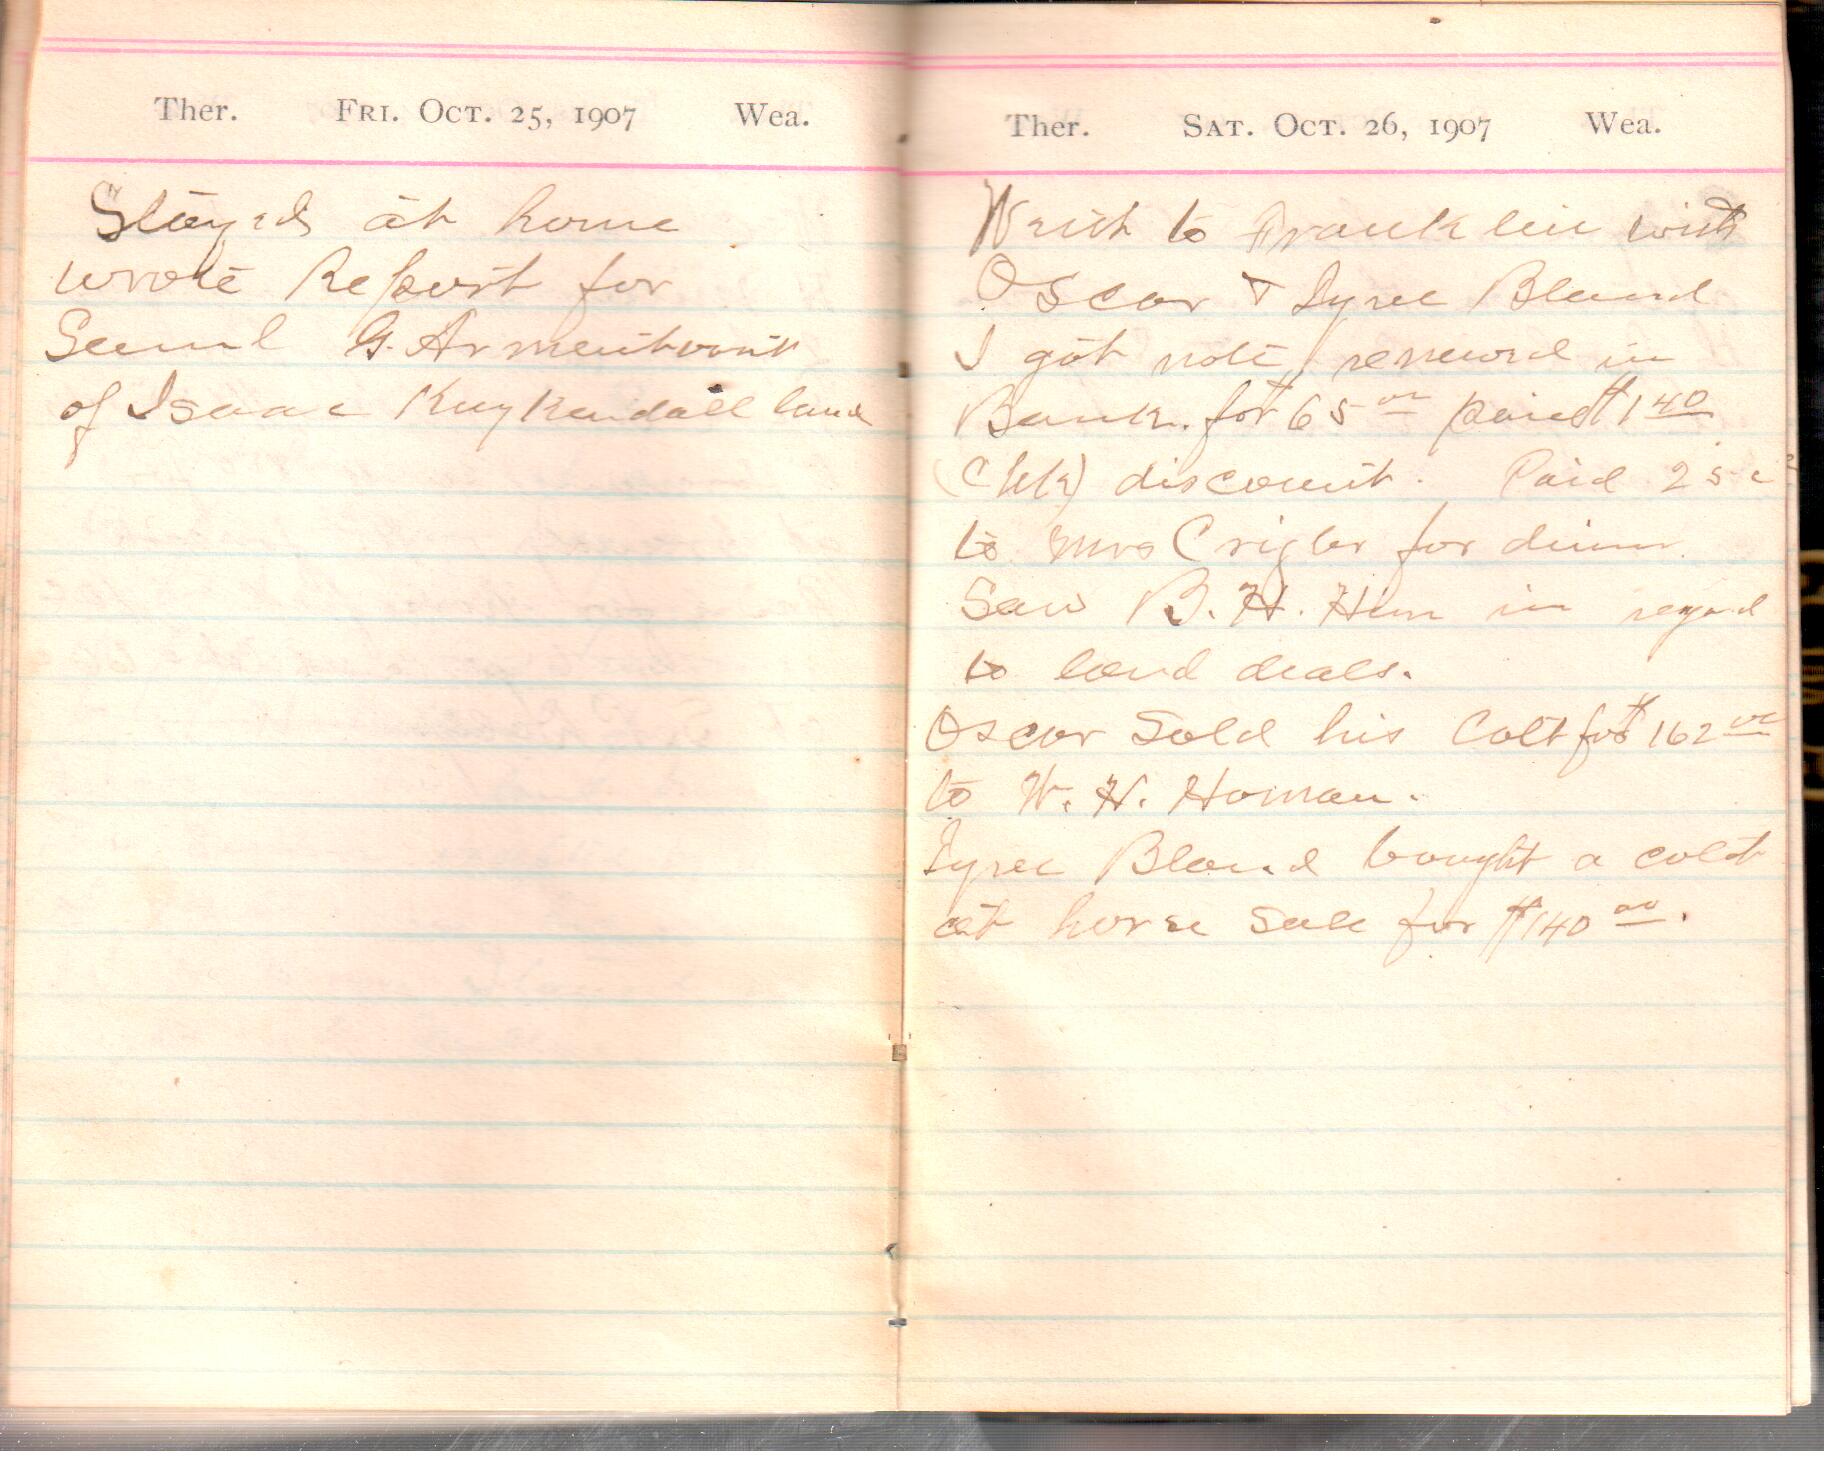 Ther. Fri. Oct. 25, 1907 Wea.
Stayed at home
wrote Report for
Saml G. Armentrout
of Isaac Kuykendall land
Ther. Sat. Oct. 26, 1907 Wea.
Went to Franklin with
Oscar & Tyree Bland
I got note renewed in
Bank. for $65 00 paid $1 40
(Chk) discount. Paid 25 c
to Mrs Crigler for dinner.
Saw B. H. Hiner in regard
to land deals.
Oscar Sold his Colt for $162 00
to W. H. Homan.
Tyree Bland bought a colt
at horse sale for $140 00.